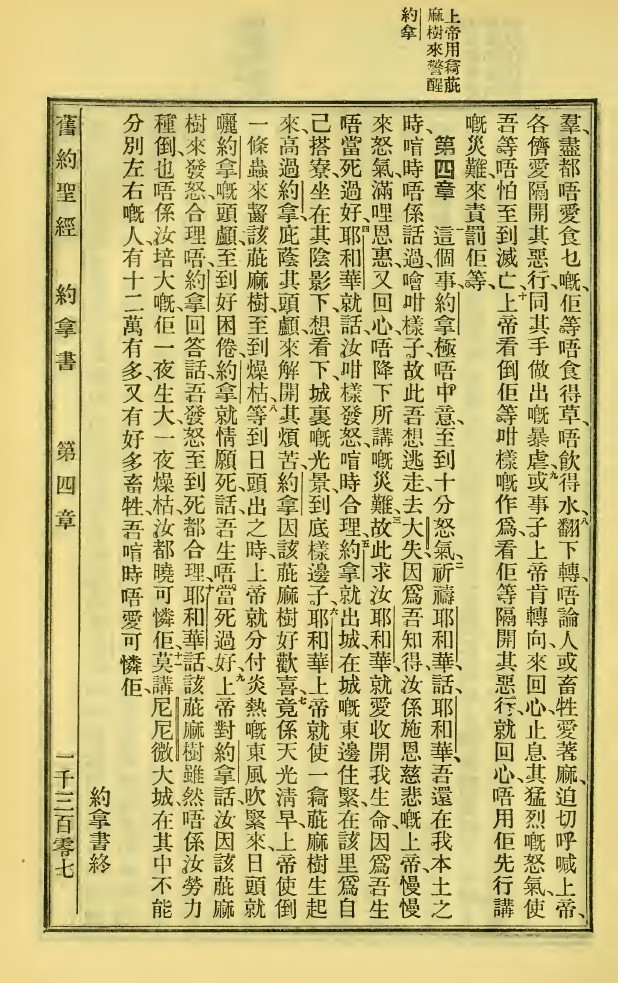 上帝用稿蓖
麻樹來警醒
約拿
羣、盡都唔愛食乜嘅、佢等唔食得草、唔飲得水、八翻下轉、唔論人或畜牲愛著麻、迫切呼喊上帝、
各儕愛隔開其惡行、同其手做出嘅暴虐、九或事子上帝肯轉向來回心、止息其猛烈嘅怒氣、使
吾等唔怕至到滅亡、十上帝看倒佢等咁樣嘅作爲、看佢等隔開其惡行、就回心、唔用佢先行講
嘅災難來責罰佢等、
第四章 一這個事、約拿極唔中意、至到十分怒氣、二祈禱耶和華、話、耶和華、吾還在我本土之
時、喑時唔係話過噲咁樣子、故此吾想逃走去大失、因爲吾知得汝係施恩慈悲嘅上帝、慢慢
來怒氣、滿哩恩惠、又回心唔降下所講嘅災難、三故此求汝耶和華、就愛收開我生命、因爲吾生
唔當死過好、四耶和華就話、汝咁樣發怒、喑時合理、五約拿就出城、在城嘅東邊住緊、在該里爲自
己搭寮、坐在其陰影下、想看下城裏嘅光景到底樣邊子、六耶和華上帝就使一稿蓖麻樹生起
來、高過約拿、庇蔭其頭顱、來解開其煩苦、約拿因該蓖麻樹好歡喜、七竟係天光清早、上帝使倒
一條蟲來齧該蓖麻樹、至到燥枯、八等到日頭出之時、上帝就分付炎熱嘅東風吹緊來、日頭就
曬約拿嘅頭顱、至到好困倦、約拿就情願死、話、吾生唔當死過好、九上帝對約拿話、汝因該蓖麻
樹來發怒、合理唔、約拿回答話、吾發怒至到死、都合理、十耶和華話、該蓖麻樹雖然唔係汝勞力
種倒、也唔係汝培大嘅、佢一夜生大、一夜燥枯、汝都曉可憐佢、十一莫講尼尼微大城、在其中不能
分別左右嘅人、有十二萬有多、又有好多畜牲、吾喑時唔愛可憐佢、
約拿書終
舊約聖經 約拿書 第四章 一千三百零七